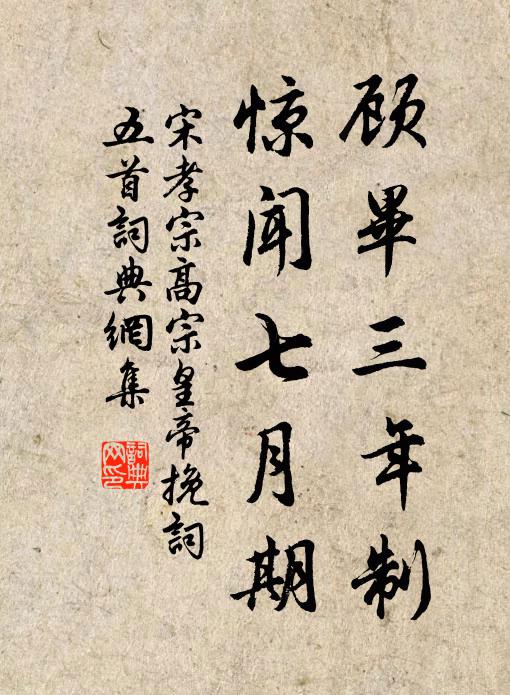 顾毕三年制
惊闻七月期
宋孝宗高宗皇帝挽词
五首词典网集
词典网印